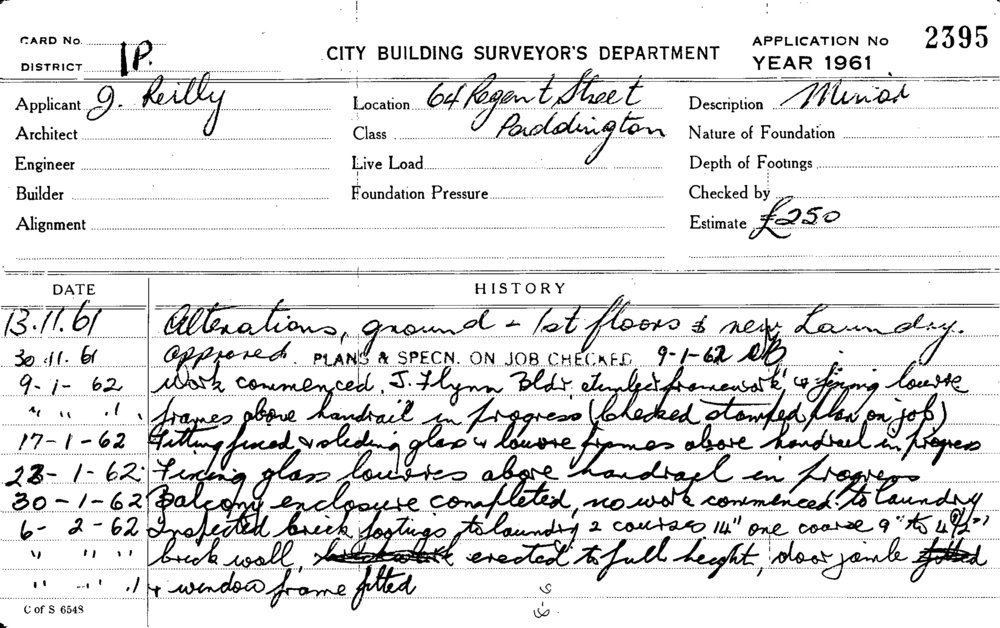 CARD No.
DISTRICT 1P.
CITY BUILDING SURVEYOR'S DEPARTMENT
APPLICATION No 2395
YEAR 1961
Applicant J. Reilly
Location 64 Regent Street
Description Minor
Architect
Class Paddington
Nature of Foundation
Engineer
Live Load
Depth of Footings
Builder
Foundation Pressure
Checked by
Alignment
Estimate £250
DATE HISTORY
13.11.61 Alterations, ground & 1st floors & new Laundry.
30.11.61 Approved. PLANS & SPECN. ON JOB CHECKED 9-1-62
9-1-62 Work commenced. J. Flynn Bldr. timber framework & fixing louvre
" " " frames above handrail in progress (checked stamped plan on job)
17-1-62 Fitting fixed & sliding glass & louvre frames above handrail in progress
23-1-62. Fixing glass louvres above handrail in progress
30-1-62 Balcony enclosure completed, no work commenced to laundry
6-2-62 Inspected brick footings to laundry 2 courses 14" one coarse 9" to 4½"
" " " brick wall, erected to full height, door jamb
" " " & window frame fitted
C of S 6548